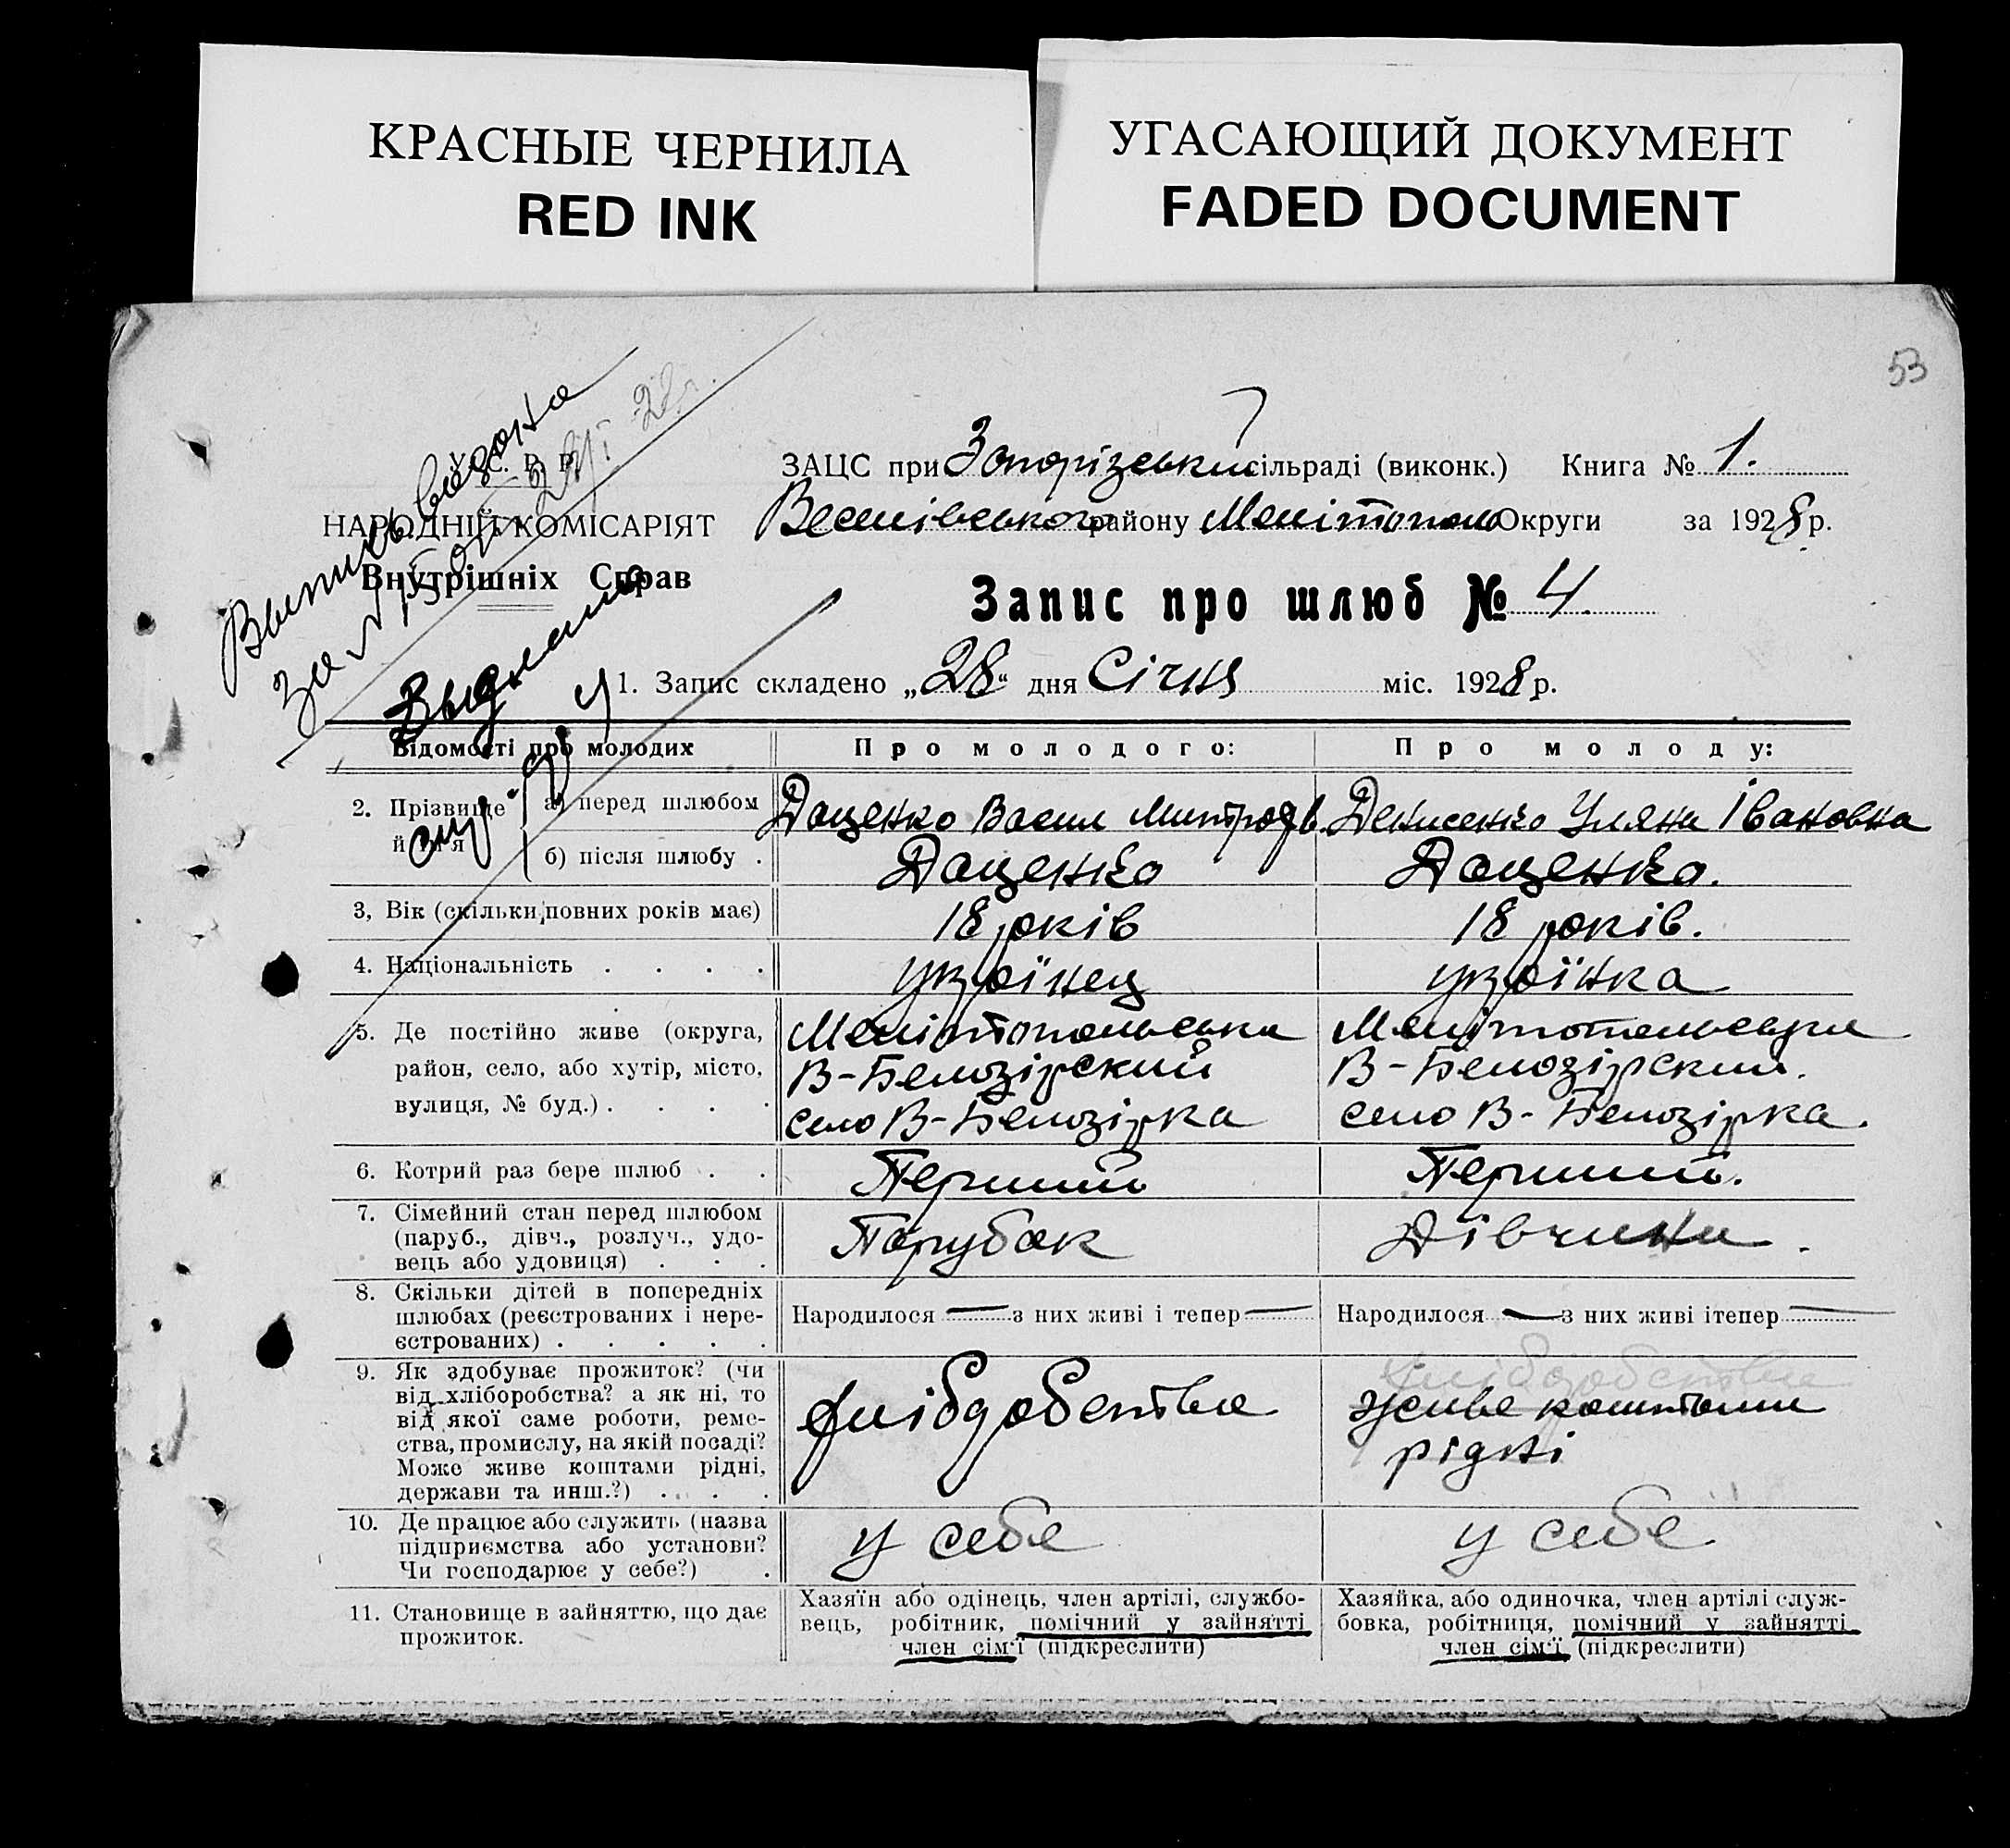 КРАСНЫЕ ЧЕРНИЛА
RED INK
УГАСАЮЩИЙ ДОКУМЕНТ
FADED DOCUMENT
53
Выпись выдана
за №
У. С. Р. Р.
НАРОДНІЙ КОМІСАРІЯТ
Внутрішніх Справ
ЗАЦС при Запорізький сільраді (виконк.) Книга № 1.
Веселівського району Мелітополь Округи за 1928 р.
Запис про шлюб № 4
1. Запис складено „28“ дня Січня міс. 1928 р.
Відомості про молодих
Про молодого:
Про молоду:
2. Прізвище й ім'я
а) перед шлюбом
Даценко Васил Митроф.
Денисенко Уляна Івановна
б) після шлюбу .
Даценко
Даценко.
3, Вік (скільки повних років має)
18 років
18 років.
4. Національність . . . .
українец
українка
5. Де постійно живе (округа,
район, село, або хутір, місто,
вулиця, № буд.) . . . .
Мелітопольська
В-Белозірский
село В-Белозірка
Мелітопольська
В-Белозірский.
село В-Белозірка.
6. Котрий раз бере шлюб . .
Перший
Перший.
7. Сімейний стан перед шлюбом
(паруб., дівч., розлуч., удо-
вець або удовиця) . . .
Парубок
Дівчина.
8. Скільки дітей в попередніх
шлюбах (реєстрованих і нере-
єстрованих) . . . . .
Народилося — з них живі і тепер —
Народилося — з них живі ітепер —
9. Як здобуває прожиток? (чи
від хліборобства? а як ні, то
від якої саме роботи, реме-
ства, промислу, на якій посаді?
Може живе коштами рідні,
держави та инш.?) . . .
живе коштами
рідні
10. Де працює або служить (назва
підприємства або установи?
Чи господарює у себе?) .
у себе
у себе
11. Становище в зайняттю, що дає
прожиток.
Хазяїн або одінець, член артілі, службо-
вець, робітник, помічний у зайнятті
член сім'ї (підкреслити)
Хазяйка, або одиночка, член артілі служ-
бовка, робітниця, помічний у зайнятті
член сім'ї (підкреслити)